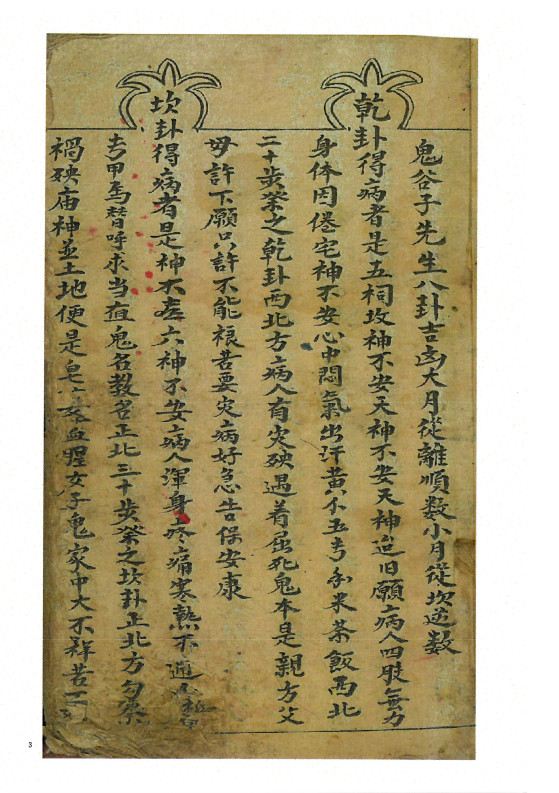 鬼谷子先生八卦吉凶大月從離順数小月從坎逆数
乾卦得病者是五祠坟神不安天神不安天神迨旧願病人四肢無力
身体困倦宅神不安心中悶氣出汗黄不五分米茶飯西北
二十步祭之乾卦西北方病人有灾殃遇着屈死鬼本是親方父
毋許下願只許不能禳若要灾病好急告保安康
坎卦得病者是神不六神不安病人渾身疼痛寒熱不通
甲馬替呼求当直鬼名教谷正北三十步祭之坎卦正北方
禍殃庙神並土地便是血腥女子鬼家中大不祥若
3